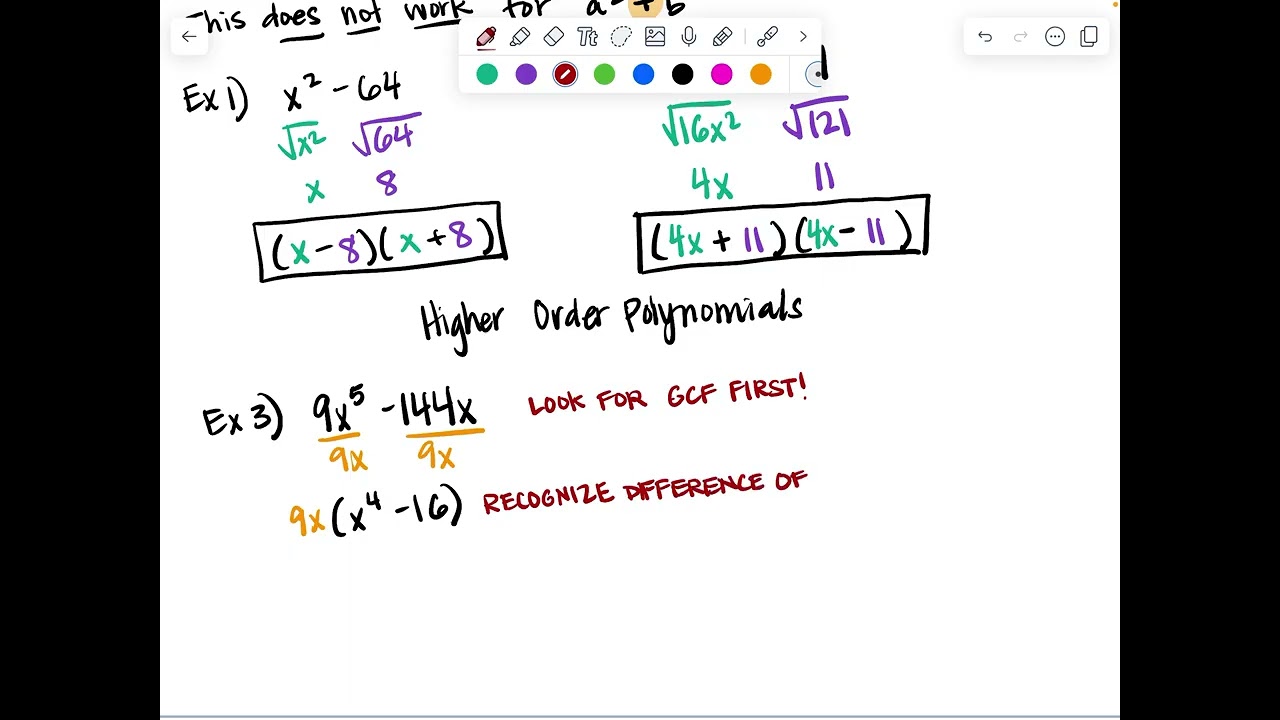 This does not work for a² + b
Tt
Ex 1) x² - 64
√x² √64
√16x² √121
x 8
4x 11
(x - 8)(x + 8)
(4x + 11)(4x - 11)
Higher Order Polynomials
Ex 3) 9x⁵ - 144x LOOK FOR GCF FIRST!
9x 9x
9x(x⁴ - 16) RECOGNIZE DIFFERENCE OF